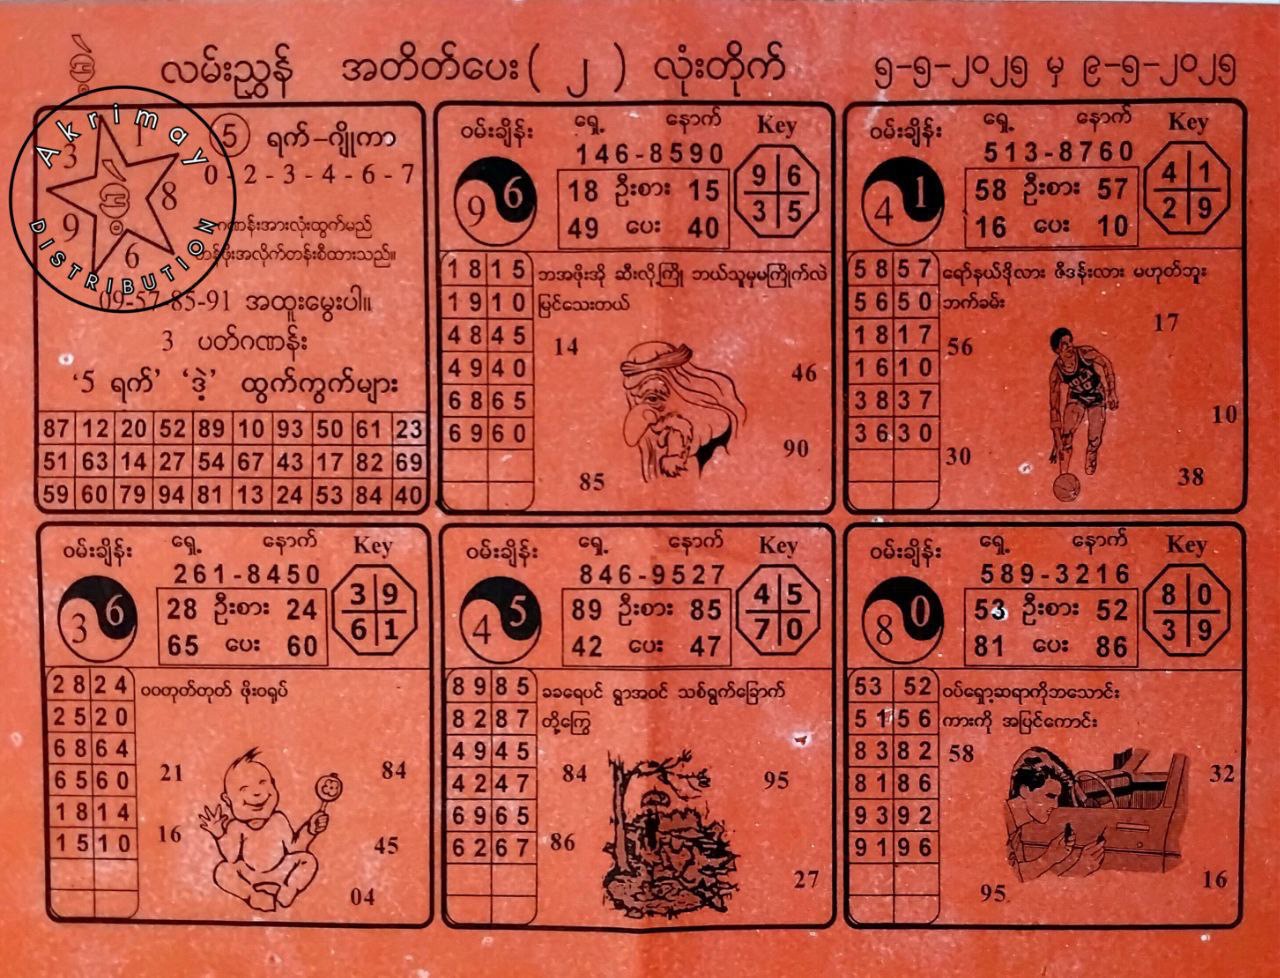 လမ်းညွှန် အတိတ်ပေး ( ၂ ) လုံးတိုက် ၅-၅-၂၀၂၅ မှ ၉-၅-၂၀၂၅
Akrimay
DISTRIBUTION
1
3
8
9
6
5 ရက်-ဂျိုကာ
0 - 2 - 3 - 4 - 6 - 7
ဂဏန်းအားလုံးထွက်မည်
တန်ဖိုးအလိုက်တန်းစီထားသည်။
09-57-85-91 အထူးမွေးပါ။
3 ပတ်ဂဏန်း
‘5 ရက်’ ‘ဒဲ့’ ထွက်ကွက်များ
87 12 20 52 89 10 93 50 61 23
51 63 14 27 54 67 43 17 82 69
59 60 79 94 81 13 24 53 84 40
ဝမ်းချိန်း ရှေ့ နောက် Key
146-8590
9 6
18 ဦးစား 15
49 ပေး 40
9 6
3 5
1 8 1 5
1 9 1 0
4 8 4 5
4 9 4 0
6 8 6 5
6 9 6 0
ဘအဖိုးအို ဆီးလို့ကြို ဘယ်သူမှမကြိုက်လဲ
မြင်သေးတယ်
14
46
90
85
ဝမ်းချိန်း ရှေ့ နောက် Key
513-8760
4 1
58 ဦးစား 57
16 ပေး 10
4 1
2 9
5 8 5 7
5 6 5 0
1 8 1 7
1 6 1 0
3 8 3 7
3 6 3 0
ရော်နယ်ဒိုလား ဇီဒန်းလား မဟုတ်ဘူး
ဘက်ခမ်း
17
56
10
30
38
ဝမ်းချိန်း ရှေ့ နောက် Key
261-8450
3 6
28 ဦးစား 24
65 ပေး 60
3 9
6 1
2 8 2 4
2 5 2 0
6 8 6 4
6 5 6 0
1 8 1 4
1 5 1 0
ဝဝတုတ်တုတ် ဖိုးဝရုပ်
21
84
16
45
04
ဝမ်းချိန်း ရှေ့ နောက် Key
846-9527
4 5
89 ဦးစား 85
42 ပေး 47
4 5
7 0
8 9 8 5
8 2 8 7
4 9 4 5
4 2 4 7
6 9 6 5
6 2 6 7
ခခရေပင် ရွာအဝင် သစ်ရွက်ခြောက်
တို့ကြွေ
84
95
86
27
ဝမ်းချိန်း ရှေ့ နောက် Key
589-3216
8 0
53 ဦးစား 52
81 ပေး 86
8 0
3 9
53 52
5 1 5 6
8 3 8 2
8 1 8 6
9 3 9 2
9 1 9 6
ဝပ်ရှော့ဆရာကိုဘသောင်း
ကားကို အပြင်ကောင်း
58
32
95
16